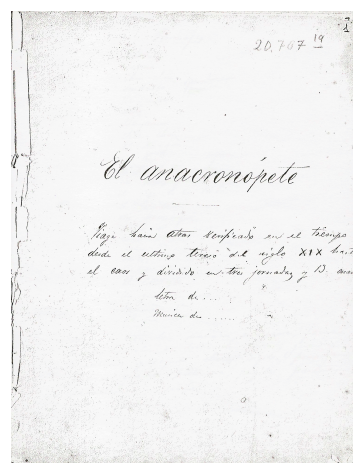 1
20.707 19
El anacronópete
Viaje hacia atras verificado en el tiempo
desde el ultimo tercio del siglo XIX hast
el caos y dividido en tres jornadas y 13. cua
letra de...
Musica de......